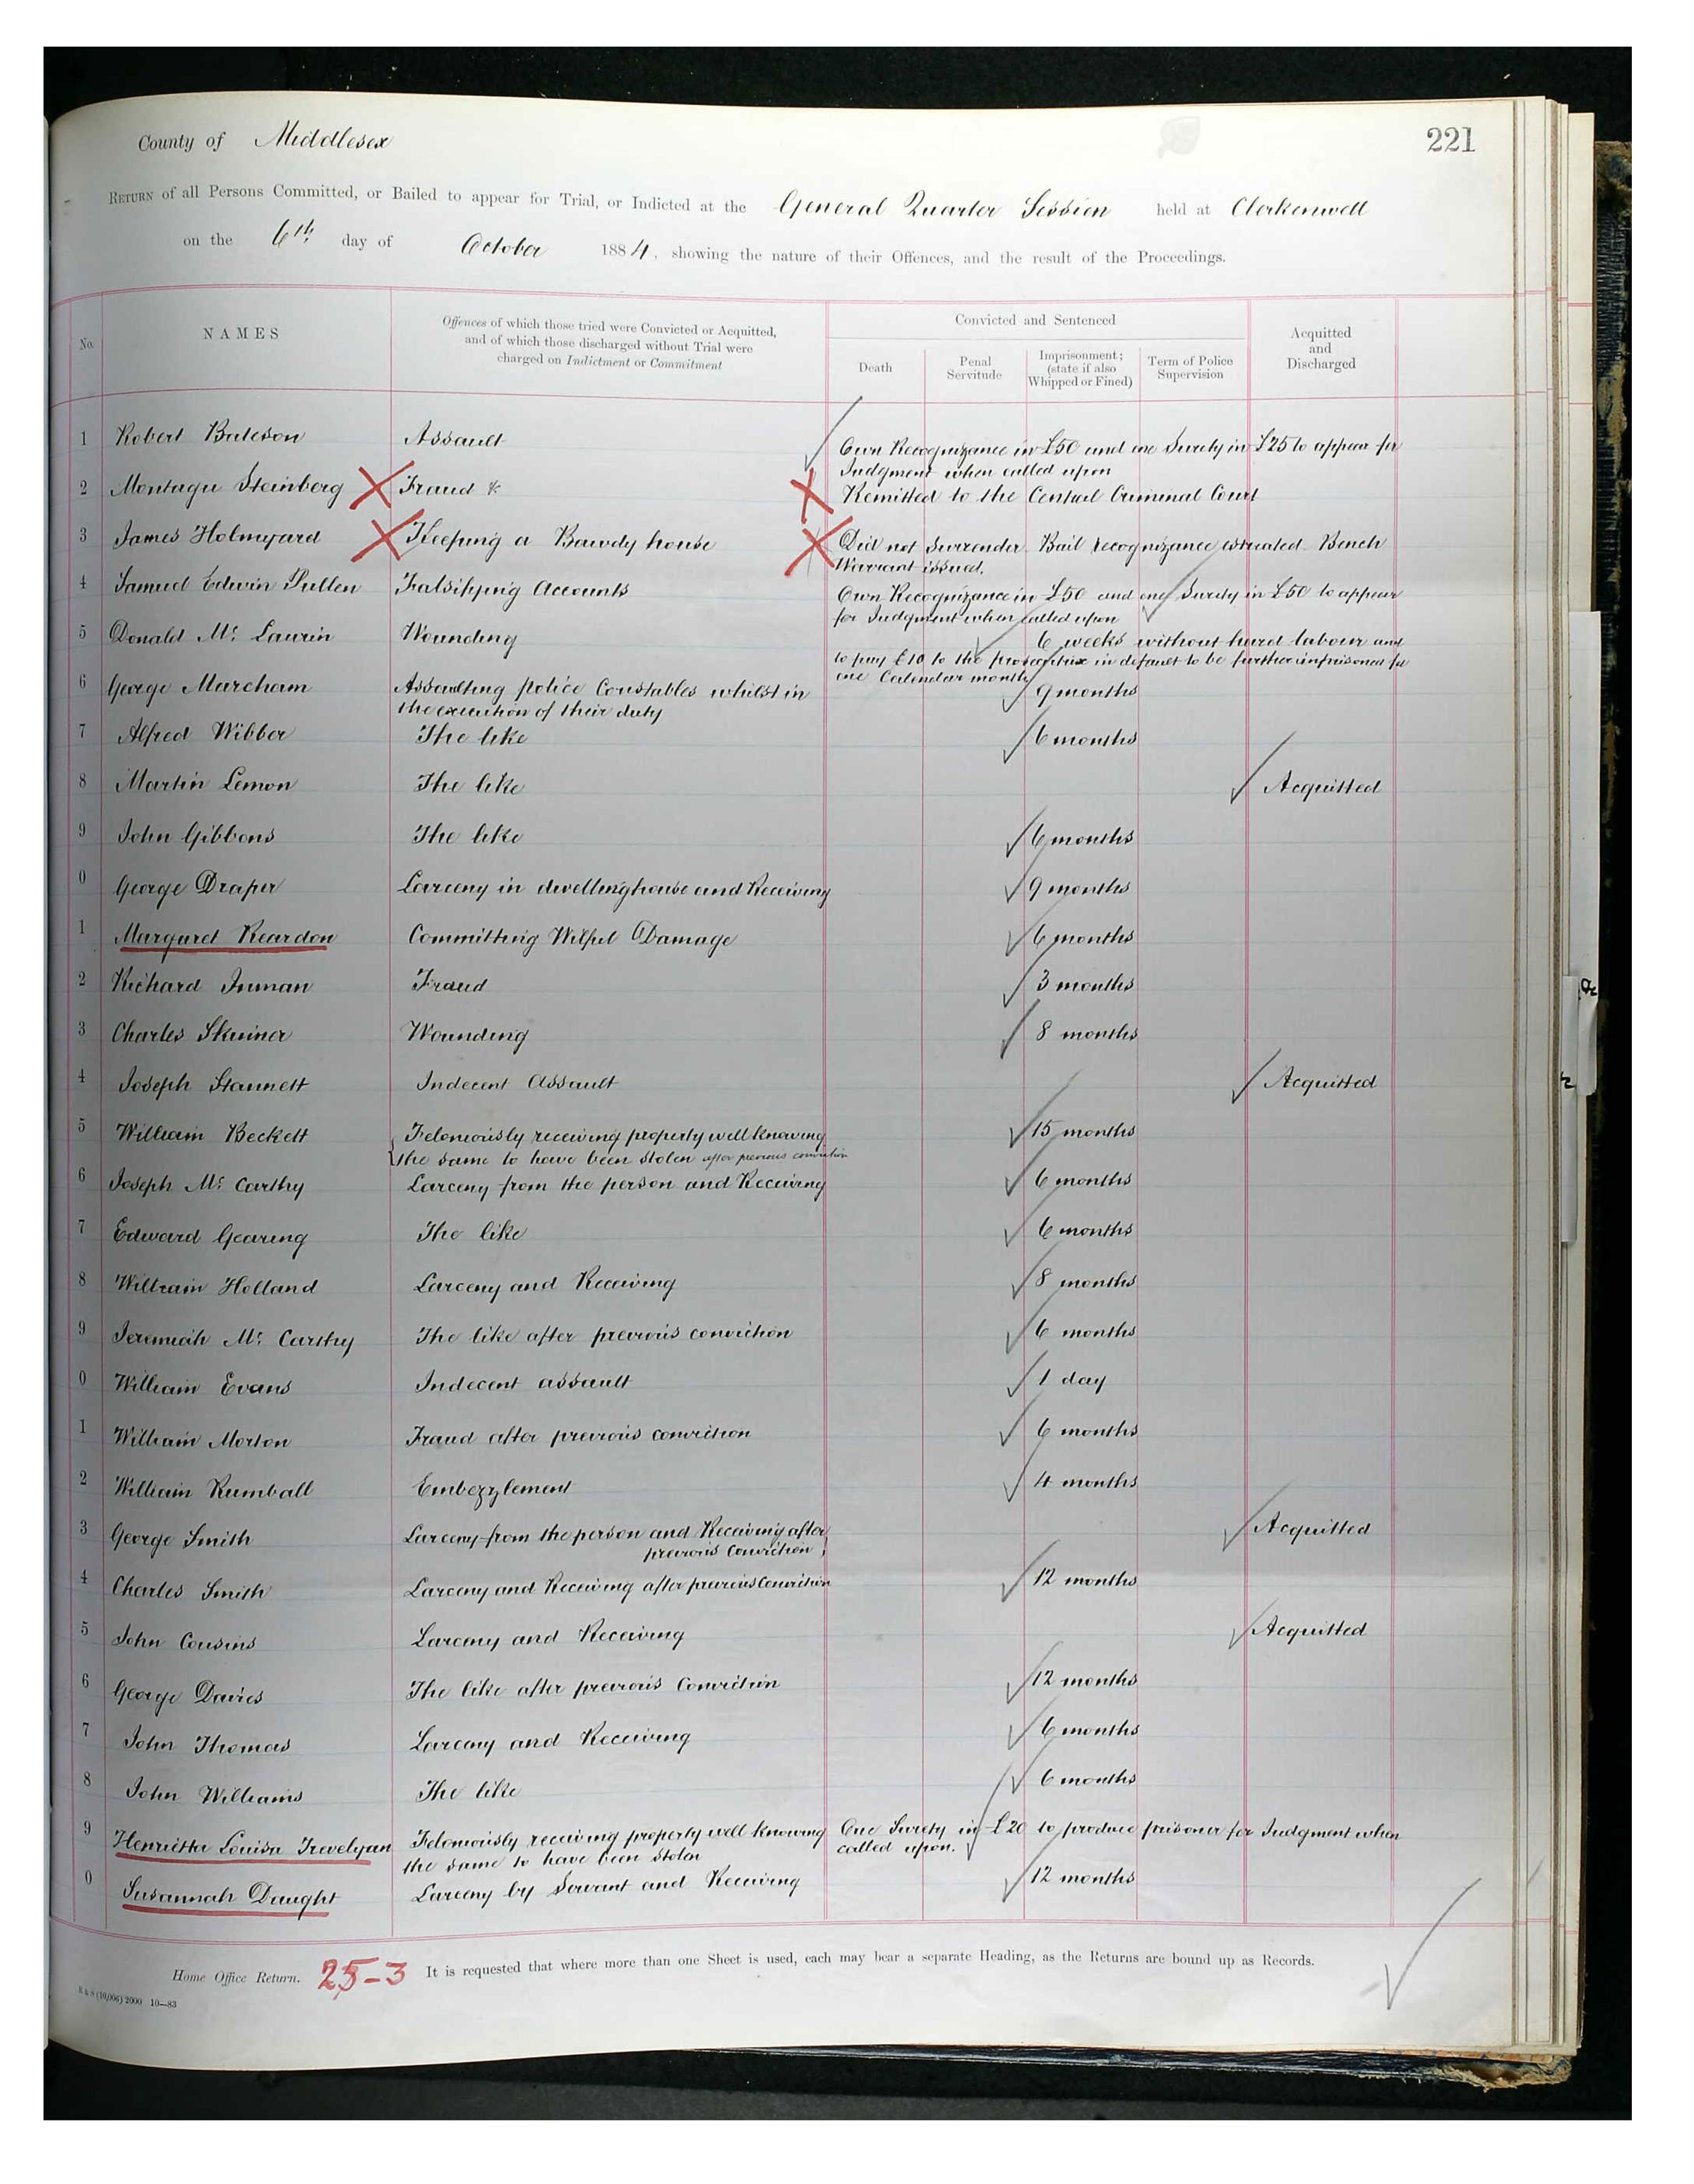 221
County of Middlesex
RETURN of all Persons Committed, or Bailed to appear for Trial, or Indicted at the General Quarter Session held at Clerkenwell
on the 6th day of October 1884, showing the nature of their Offences, and the result of the Proceedings.
No.
NAMES
Offences of which those tried were Convicted or Acquitted,
and of which those discharged without Trial were
charged on Indictment or Commitment
Convicted and Sentenced
Death
Penal
Servitude
Imprisonment;
(state if also
Whipped or Fined)
Term of Police
Supervision
Acquitted
and
Discharged
1 Robert Bateson Assault Own Recognizance in £50 and one Surety in £25 to appear for
Judgment when called upon
2 Montagu Steinberg Fraud &c Remitted to the Central Criminal Court
3 James Holmyard Keeping a Bawdy house Did not Surrender. Bail recognizance estreated. Bench
Warrant issued.
4 Samuel Edwin Pullen Falsifying Accounts Own Recognizance in £50 and one Surety in £50 to appear
for Judgment when called upon
5 Donald Mc. Laurin Wounding 6 weeks without hard labour and
to pay £10 to the prosecutrix in default to be further imprisoned for
one Calendar month
6 George Marcham Assaulting police Constables whilst in 9 months
the execution of their duty
7 Alfred Wibber The like 6 months
8 Martin Lemon The like Acquitted
9 John Gibbons The like 6 months
0 George Draper Larceny in dwellinghouse and Receiving 9 months
1 Margaret Reardon Committing Wilful Damage 6 months
2 Richard Inman Fraud 3 months
3 Charles Skinner Wounding 8 months
4 Joseph Stannett Indecent Assault Acquitted
5 William Beckett Feloniously receiving property well knowing 15 months
the same to have been stolen after previous conviction
6 Joseph Mc. Carthy Larceny from the person and Receiving 6 months
7 Edward Gearing The like 6 months
8 William Holland Larceny and Receiving 8 months
9 Jeremiah Mc. Carthy The like after previous conviction 6 months
0 William Evans Indecent assault 1 day
1 William Morton Fraud after previous conviction 6 months
2 William Rumball Embezzlement 4 months
3 George Smith Larceny from the person and Receiving after Acquitted
previous Conviction
4 Charles Smith Larceny and Receiving after previous Conviction 12 months
5 John Cousins Larceny and Receiving Acquitted
6 George Davies The like after previous Conviction 12 months
7 John Thomas Larceny and Receiving 6 months
8 John Williams The like 6 months
9 Henrietta Louisa Trevelyan Feloniously receiving property well knowing One Surety in £20 to produce prisoner for Judgment when
the same to have been stolen called upon.
0 Susannah Daught Larceny by Servant and Receiving 12 months
Home Office Return. 25-3 It is requested that where more than one Sheet is used, each may bear a separate Heading, as the Returns are bound up as Records.
(10,006) 2000 10—83